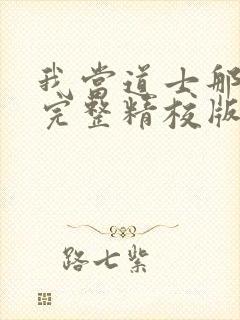 我当道士那
完整精校版
路七紫